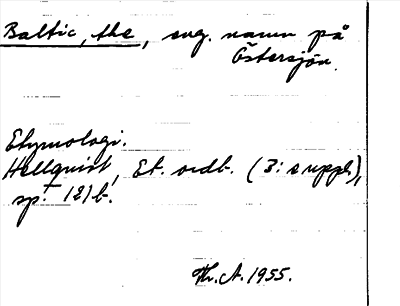 Baltic, the, eng. namn på
Östersjön.
Etymologi.
Hellquist, Et. ordb. (3: e uppl.),
sp. 1216.
Th. A. 1955.